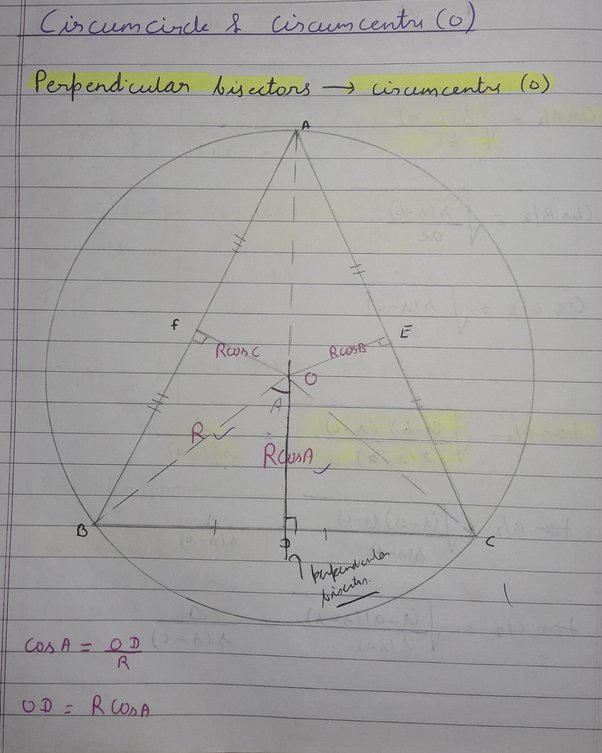 Circumcircle & circumcentre (O)
Perpendicular bisectors → circumcentre (O)
A
F
E
R cos C
R cos B
O
A
R ✓
R cos A ✓
B
D
C
perpendicular
bisector.
cos A = OD/R
OD = R cos A